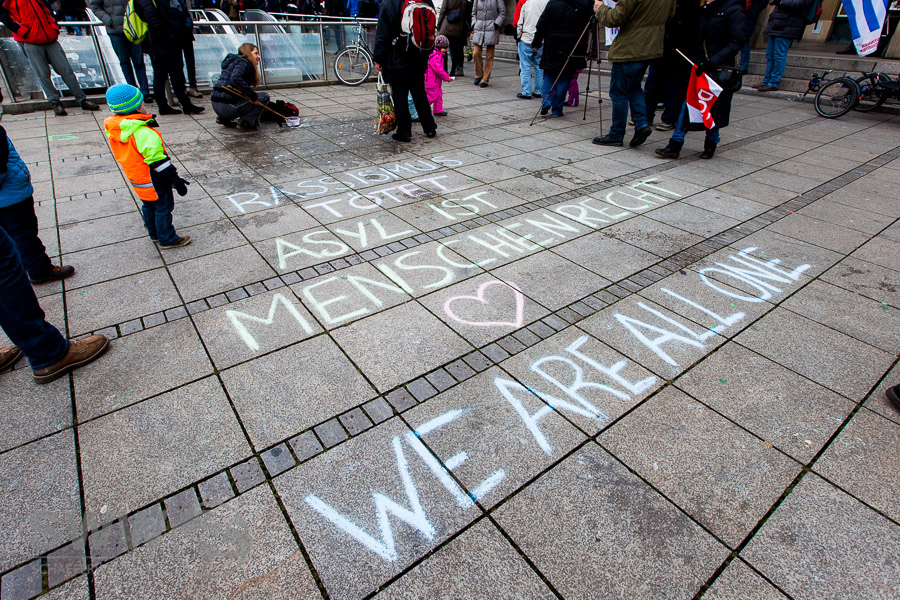 RASSISMUS
TÖTET
ASYL IST
MENSCHENRECHT
WE ARE ALL ONE